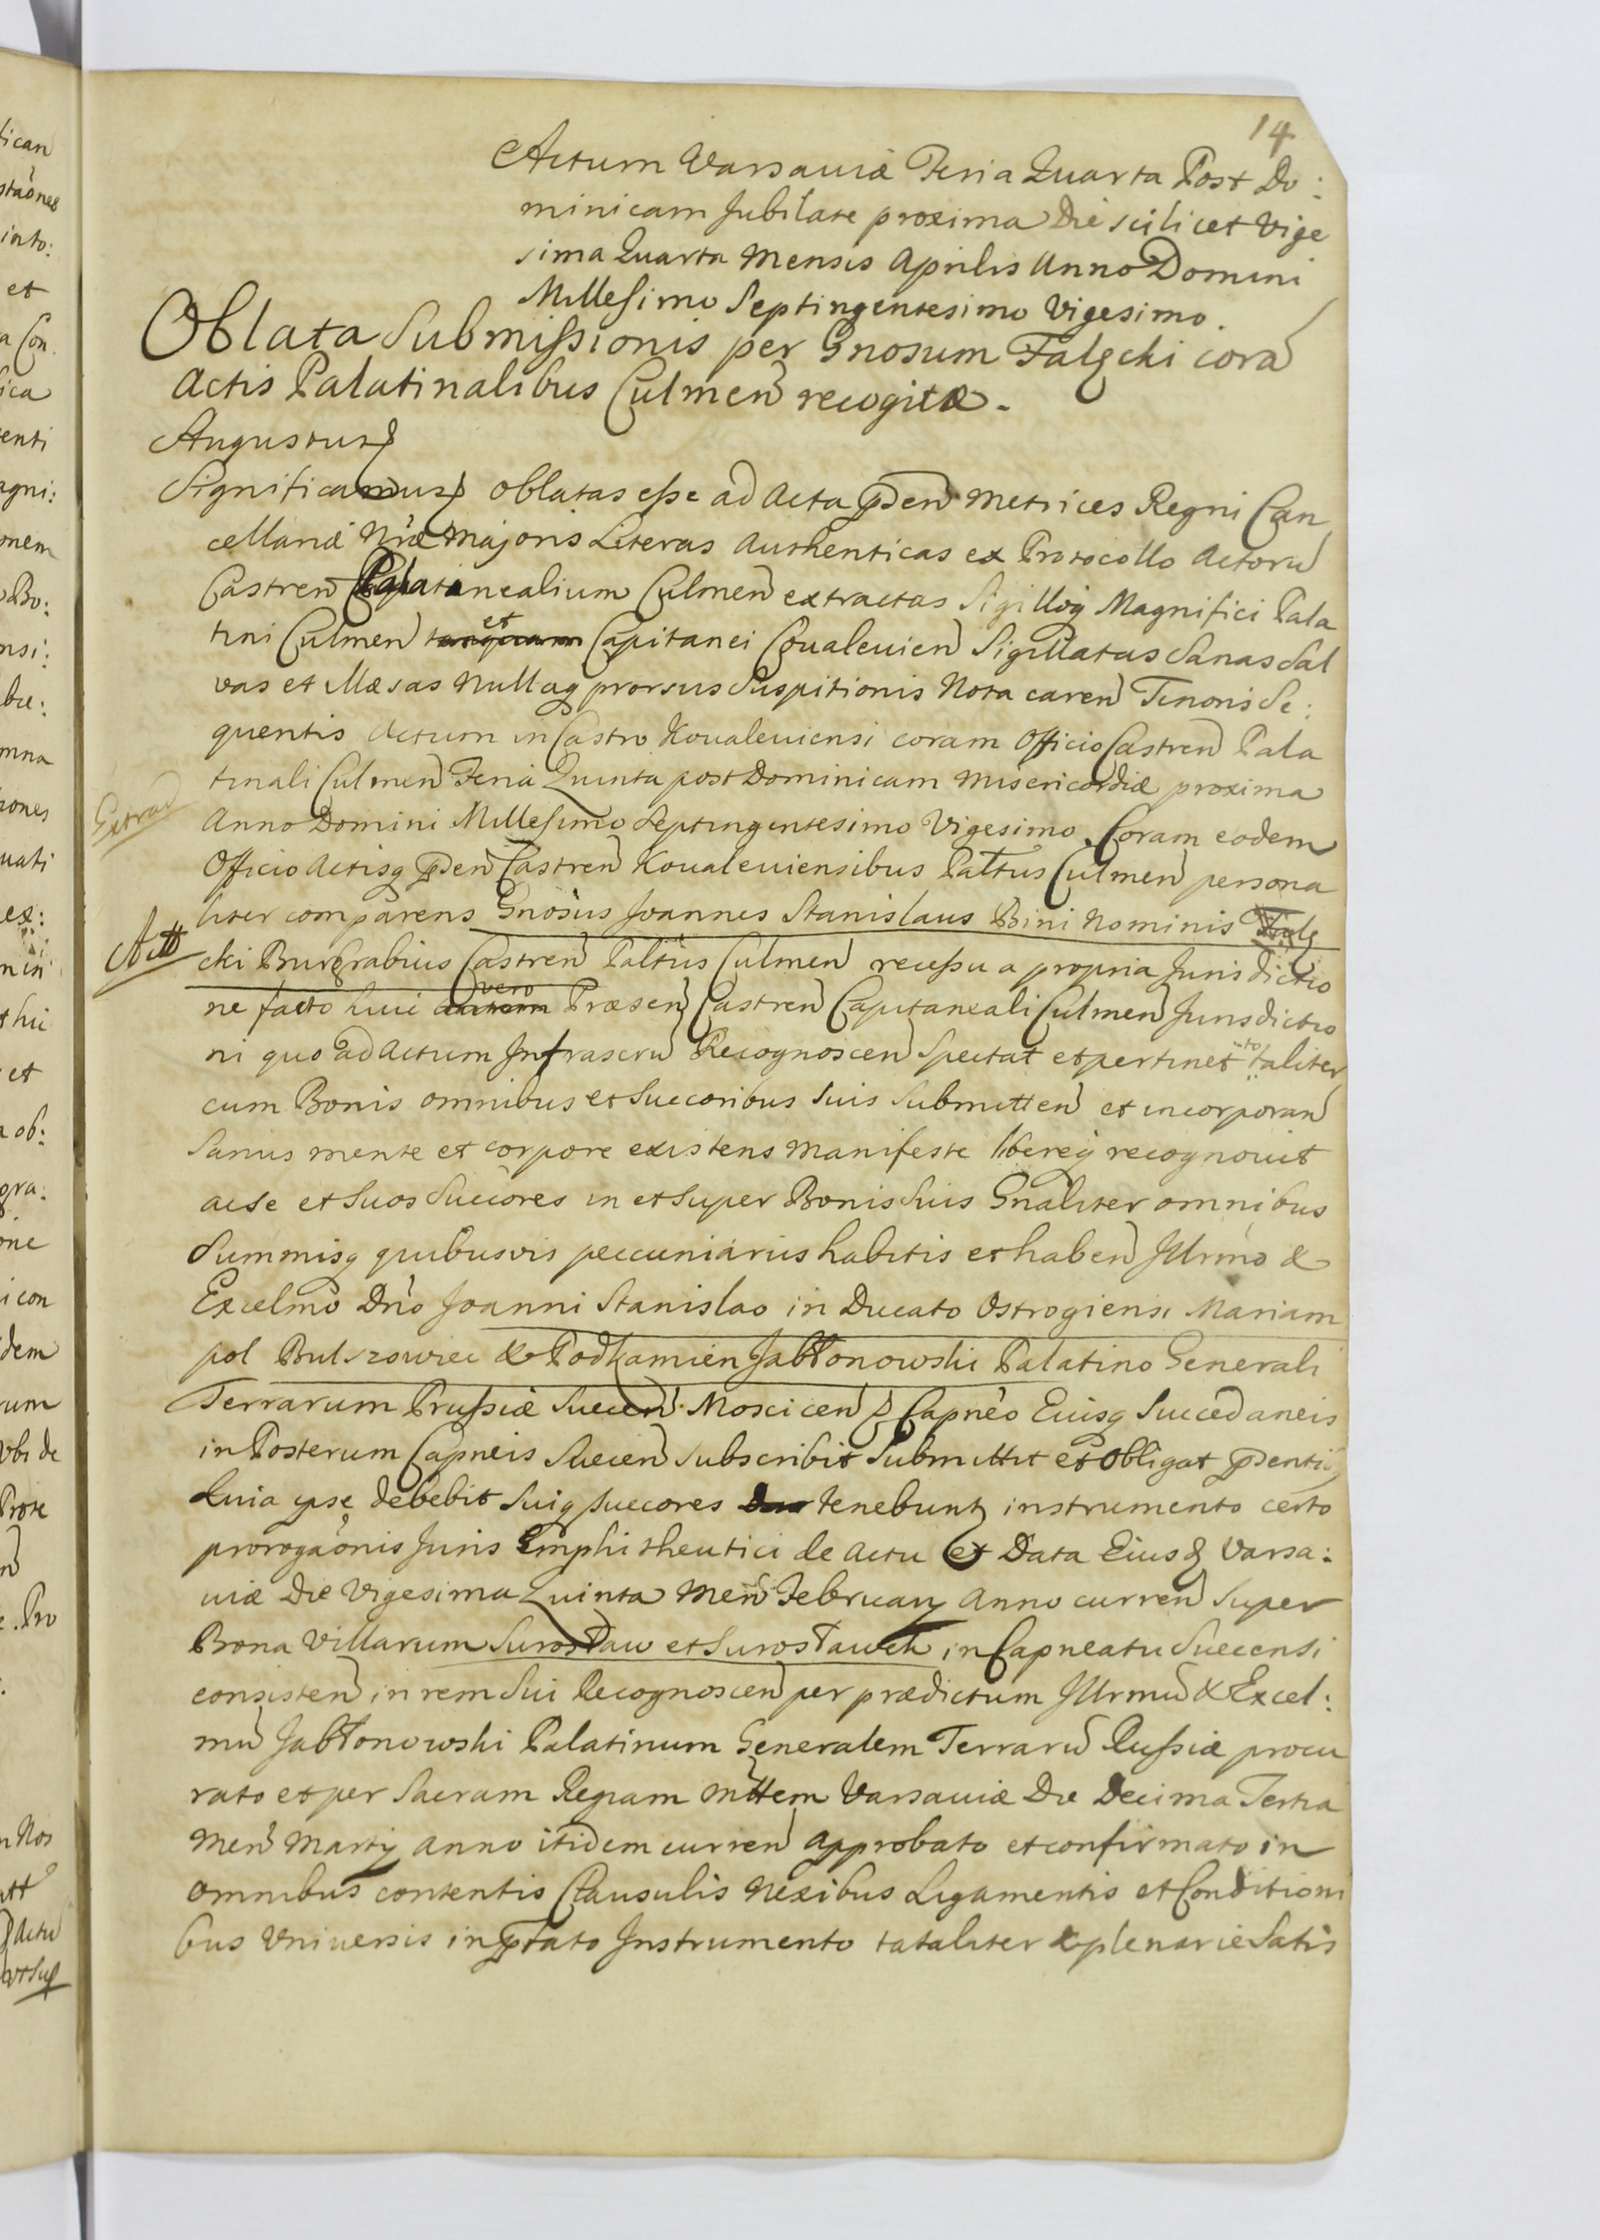 14
Actum Varsaviæ Feria Quarta Post Do:
minicam Jubilate proxima Die scilicet Vige
sima Quarta Mensis Aprilis Anno Domini
Millesimo Septingentesimo Vigesimo.
Oblata Submissionis per Gnosum Falęcki cora
Actis Palatinalibus Culmen recogitæ.
Augustus
Significamus oblatas esse ad Acta pñen Metrices Regni Can
cellariæ Nræ Majoris Literas Authenticas ex Protocollo Actoru
Castren Capitanealium Culmen extractas Sigilloq Magnifici Pala
tini Culmen et Capitanei Coualeuien Sigillatas Sanas Sal
vas et Illæsas Nullaq prorsus Suspitionis Nota caren Tenoris Se:
quentis Actum in Castro Koualeuiensi coram Officio Castren Pala
tinali Culmen Feria Quinta post Dominicam Misericordiæ proxima
Extrad
Anno Domini Millesimo Septingentesimo Vigesimo. Coram eodem
Officio Actisq pñen Castren Koualeuiensibus Paltus Culmen persona
liter comparens Gnosus Joannes Stanislaus Bini Nominis Falę
cki Burgrabius Castren Paltus Culmen recessu a propria Jurisdictio
ne facto huic vero Præsen Castren Capitaneali Culmen Jurisdictio
ni quo ad Actum Infrascru Recognoscen Spectat et pertinet totaliter
cum Bonis omnibus et Succoribus suis Submitten et incorporan
Sanus mente et corpore existens manifeste libereq recognouit
ac se et Suos Succores in et super Bonis Suis Gnaliter omnibus
Summisq quibusvis pecuniariis habitis et haben Jllrmo &
Excelmo Dno Joanni Stanislao in Ducato Ostrogiensi Mariam
pol Bulszowiec & Podkamien Jabłonowski Palatino Generali
Terrarum Prussiæ Suecen Moscicen Capneo Eiusq Succedaneis
in Posterum Capneis Suecen subscribit Submittit et Obligat pñentiu
Quia ipse debebit Suiq succores tenebunt instrumento certo
prorogaonis Juris Emphitheutici de Actu et Data Eiusd Varsa:
uiæ Die Vigesima Quinta Men Februarij Anno curren Super
Bona Villarum Surosław et Surosławek in Capneatu Suecensi
consisten in rem sui Recognoscen per prædictum Jllrmu & Excel:
mu Jabłonowski Palatinum Generalem Terraru Russiæ procu
rato et per Sacram Regiam Mttem Varsauiæ Die Decima Tertia
Men Martij Anno itidem curren approbato et confirmato in
omnibus contentis Clausulis Nexibus Ligamentis et Condition
bus Vniuersis in ptato Instrumento tataliter & plenarie Satis